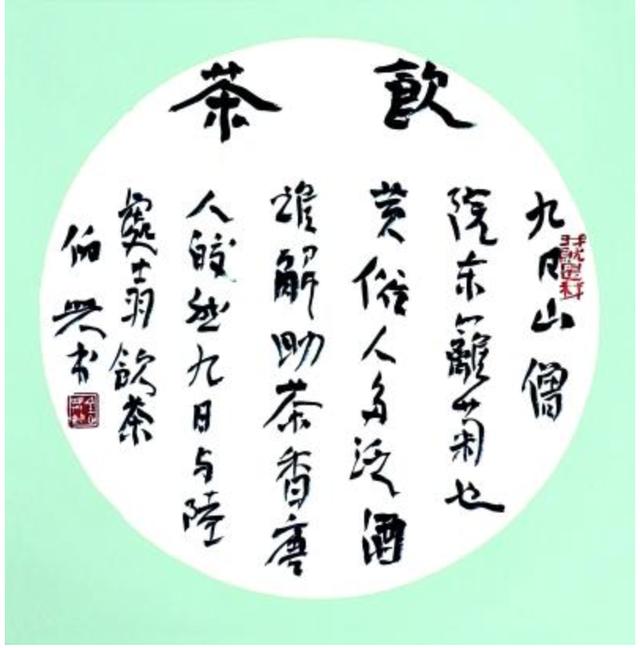 飲茶
九日山僧
院东籬菊也
黄俗人多泛酒
誰解助茶香唐
人皎然九日与陸
處士羽飲茶
伯兴书